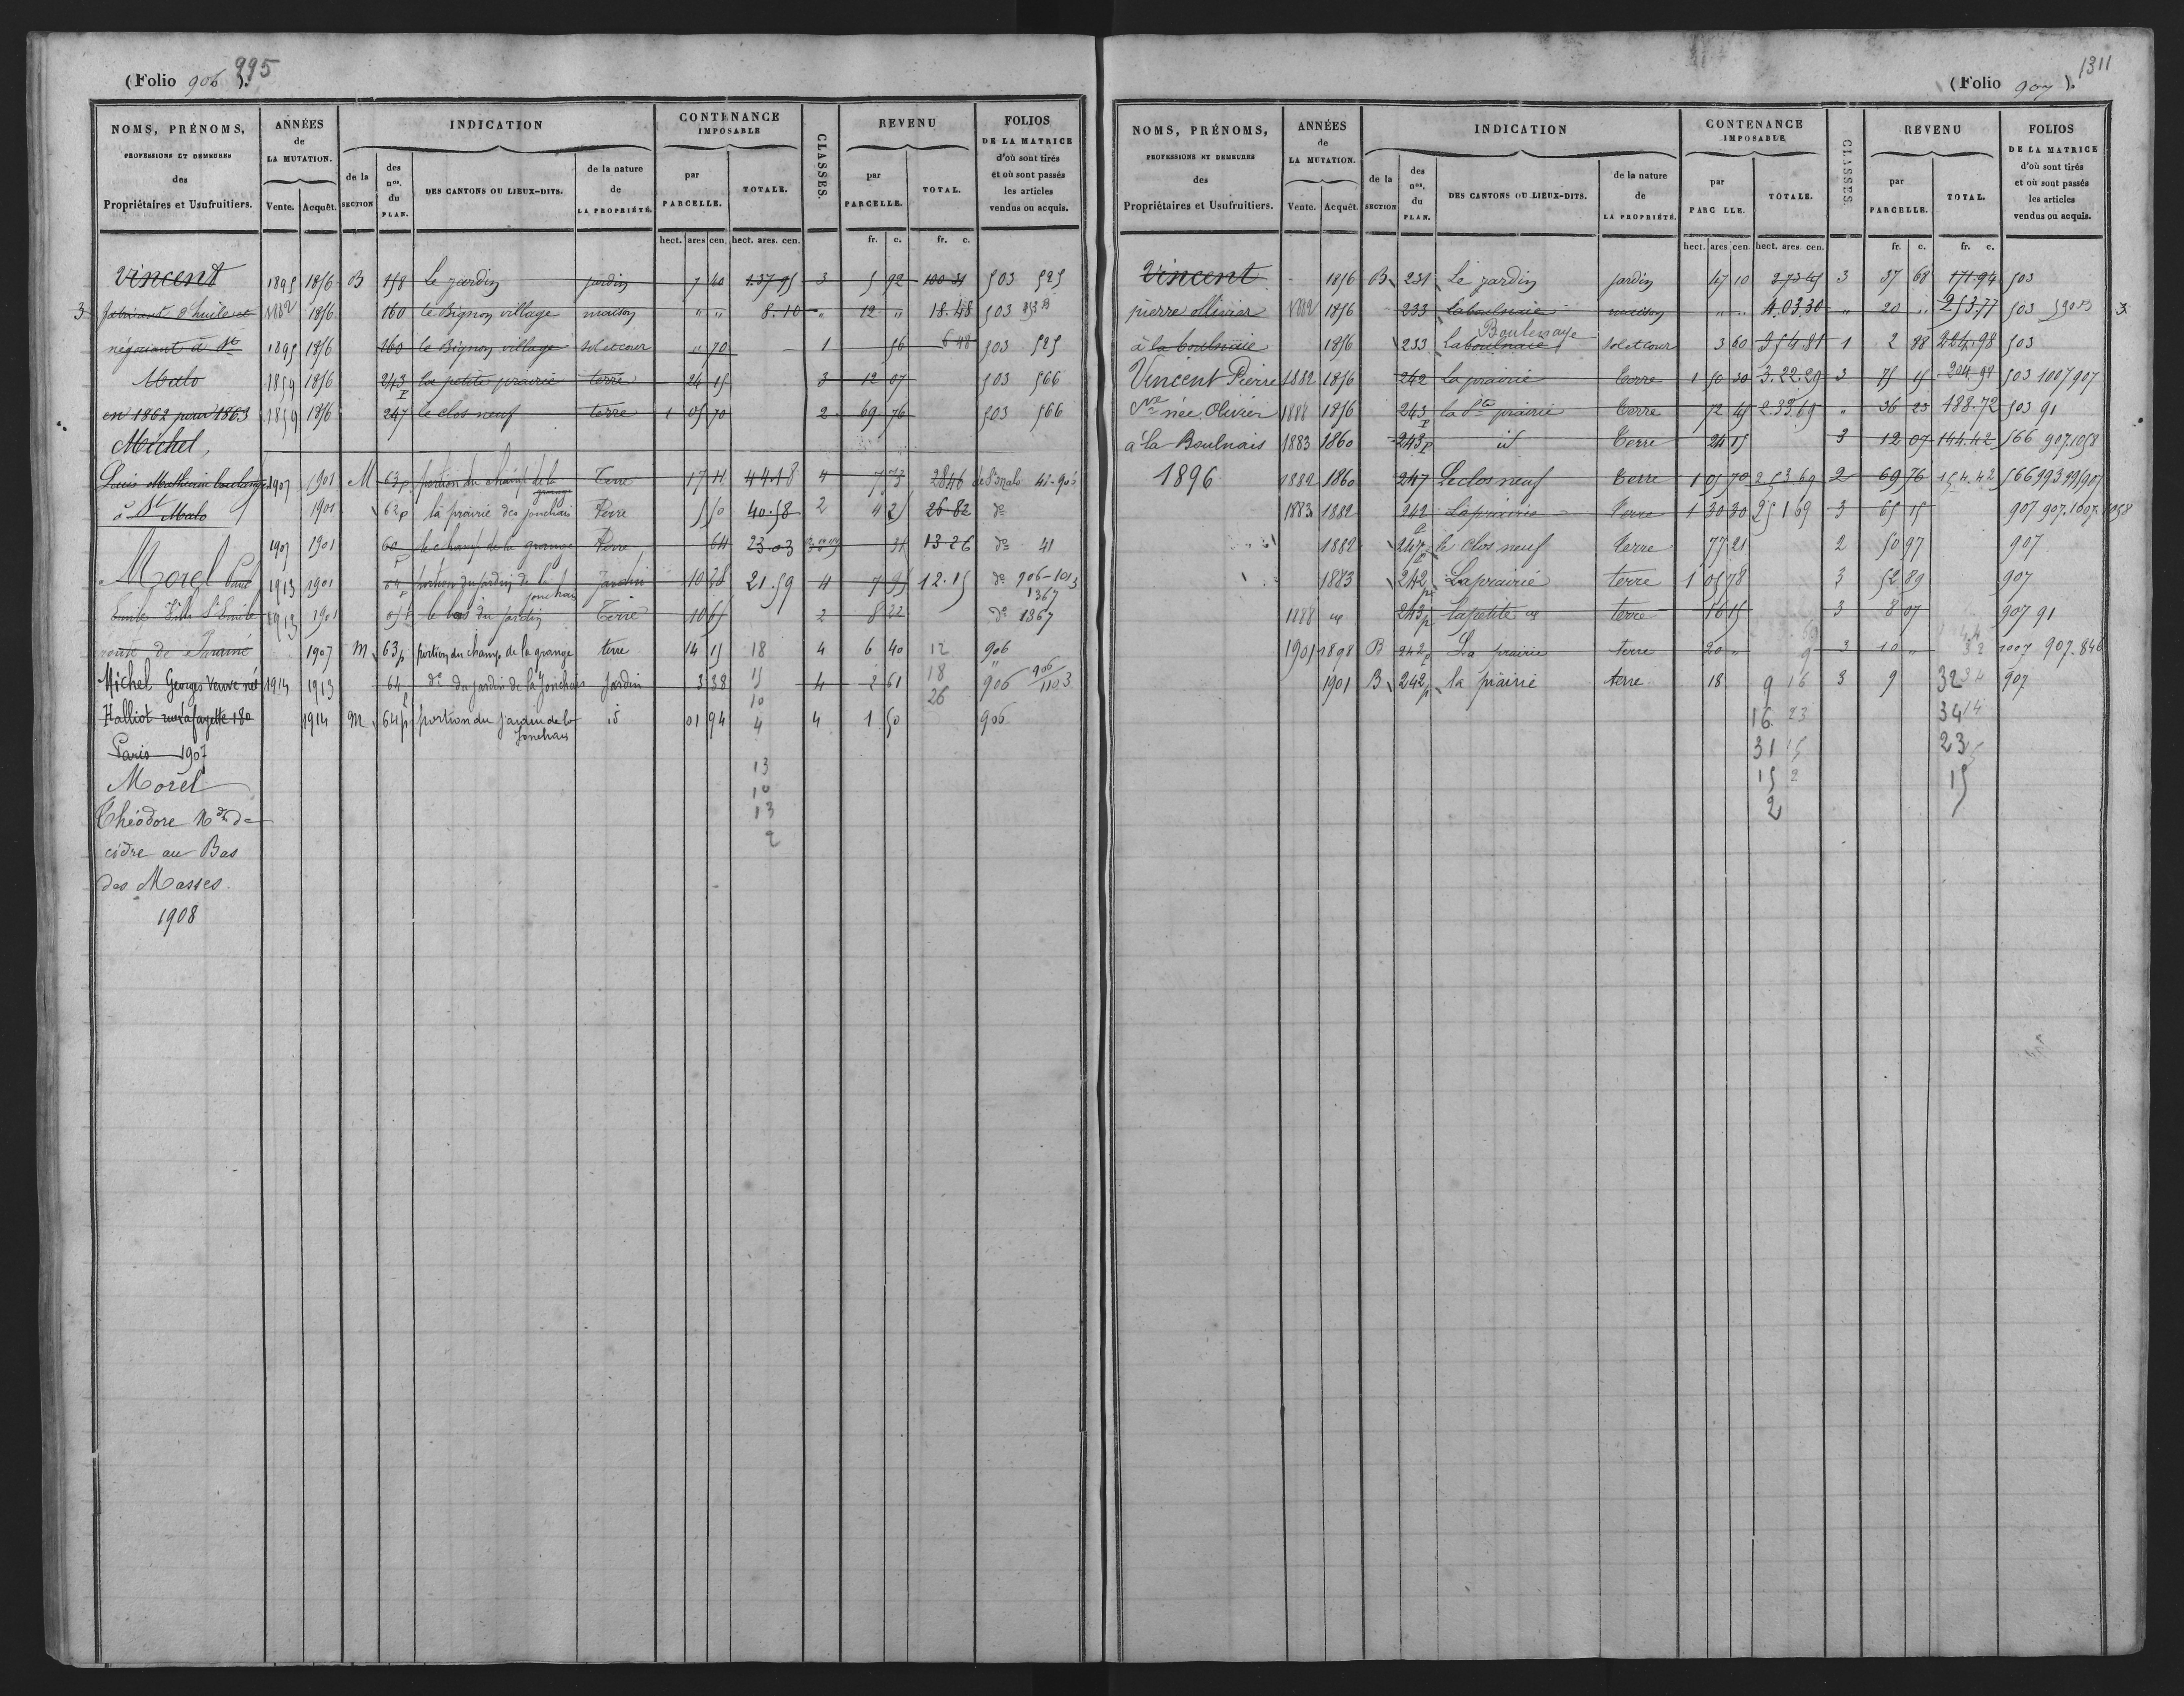 (Folio 906). 995
NOMS, PRÉNOMS, PROFESSIONS ET DEMEURES des Propriétaires et Usufruitiers.
ANNÉES de LA MUTATION. Vente. Acquêt.
INDICATION
de la SECTION
des nos. du PLAN.
DES CANTONS OU LIEUX-DITS.
de la nature de LA PROPRIÉTÉ.
CONTENANCE IMPOSABLE
par PARCELLE. TOTALE.
CLASSES.
REVENU
par PARCELLE. TOTAL.
FOLIOS DE LA MATRICE d'où sont tirés et où sont passés les articles vendus ou acquis.
hect. ares cen. hect. ares. cen. fr. c. fr. c.
Vincent 1895 1856 B 158 Le jardin jardin 7 40 1.37 95 3 5 92 100 31 503 525
3 fabricant d'huile et 1882 1856 160 le Bignon village maison " " 8.10 " 12 " 18.48 503
négociant à St 1895 1856 160 le Bignon village sol et cour " 70 1 56 6 48 503 525
Malo 1859 1856 243 p la petite prairie terre 24 15 3 12 07 503 566
en 1862 pour 1863 1859 1856 247 le clos neuf terre 1 05 70 2 69 76 503 566
Michel,
Louis Mathurin 1907 1901 M 63p portion du champ de la grange Terre 17 11 44.18 4 7 73 28 46
à St Malo 1901 62p la prairie des jonchais Terre 40.58 2 4 25 26-82 do
1907 1901 60 p le champ de la grange Terre 64 23.03 31 13-26 do 41
Morel Paul 1913 1901 64 p portion du jardin de la jonchais Jardin 10 38 21.59 4 7 95 12.15 do 906-1013 1367
Emile 1913 1901 le bas du jardin Terre 10 65 2 8 22 do 1367
route de Paramé 1907 M 63p portion du champ de la grange terre 14 15 18 4 6 40 12 906
Michel Georges Veuve née 1914 1913 64 p do du jardin de la Jonchais Jardin 3 38 15 4 2 61 18 906 906 1103
10 26
Halliot rue Lafayette 180 1914 M 64p portion du jardin de la Jonchais id 01 94 4 4 1 50 906
Paris 1907
Morel 13
10
Théodore Md de 13
2
cidre au Bas
des Masses
1908
(Folio 907). 1311
NOMS, PRÉNOMS, PROFESSIONS ET DEMEURES des Propriétaires et Usufruitiers.
ANNÉES de LA MUTATION. Vente. Acquêt.
INDICATION
de la SECTION
des nos. du PLAN.
DES CANTONS OU LIEUX-DITS.
de la nature de LA PROPRIÉTÉ.
CONTENANCE IMPOSABLE
par PARC LLE. TOTALE.
CLASSES.
REVENU
par PARCELLE. TOTAL.
FOLIOS DE LA MATRICE d'où sont tirés et où sont passés les articles vendus ou acquis.
hect. ares cen. hect. ares. cen. fr. c. fr. c.
Vincent 1856 B 231 Le jardin jardin 47 10 2 73 45 3 37 68 171.94 503
pierre Olivier 1882 1856 233 Laboulnaie maison " " 4.03.30 " 20 " 253.77 503 590B 3
à la boulnaie 1856 233 Laboulnaie Boulenaye sol et cour 3 60 3 54 81 1 2 88 224.98 503
Vincent Pierre 1882 1856 242 la prairie terre 1 50 30 3.22.29 3 75 15 204.98 503 1007 907
Ve née Olivier 1888 1856 243 p la Pte prairie terre 72 45 2.33.69 " 36 23 188.72 503 91
à la Boulnais 1883 1860 243p id Terre 24 15 3 12 07 144.42 566 907.1058
1896 1882 1860 247 Le clos neuf terre 1 05 70 2 53 69 2 69 76 154.42 566 993 991 907
1883 1882 242 p La prairie Terre 1 30 30 25 1 69 3 65 15 907 907.1007.1058
1882 247 p le clos neuf terre 77 21 2 50 97 907
1883 242 p La prairie terre 1 05 78 3 52 89 907
1888 id 243p la petite id terre 16 15 3 8 07 907 91
1901 1898 B 242p La prairie terre 20 " 9 3 10 " 1007 907.846
1901 B 242p la prairie terre 18 9 16 3 9 32 34 907
16 23 34 14
31 15 23 5
15 2 15
2